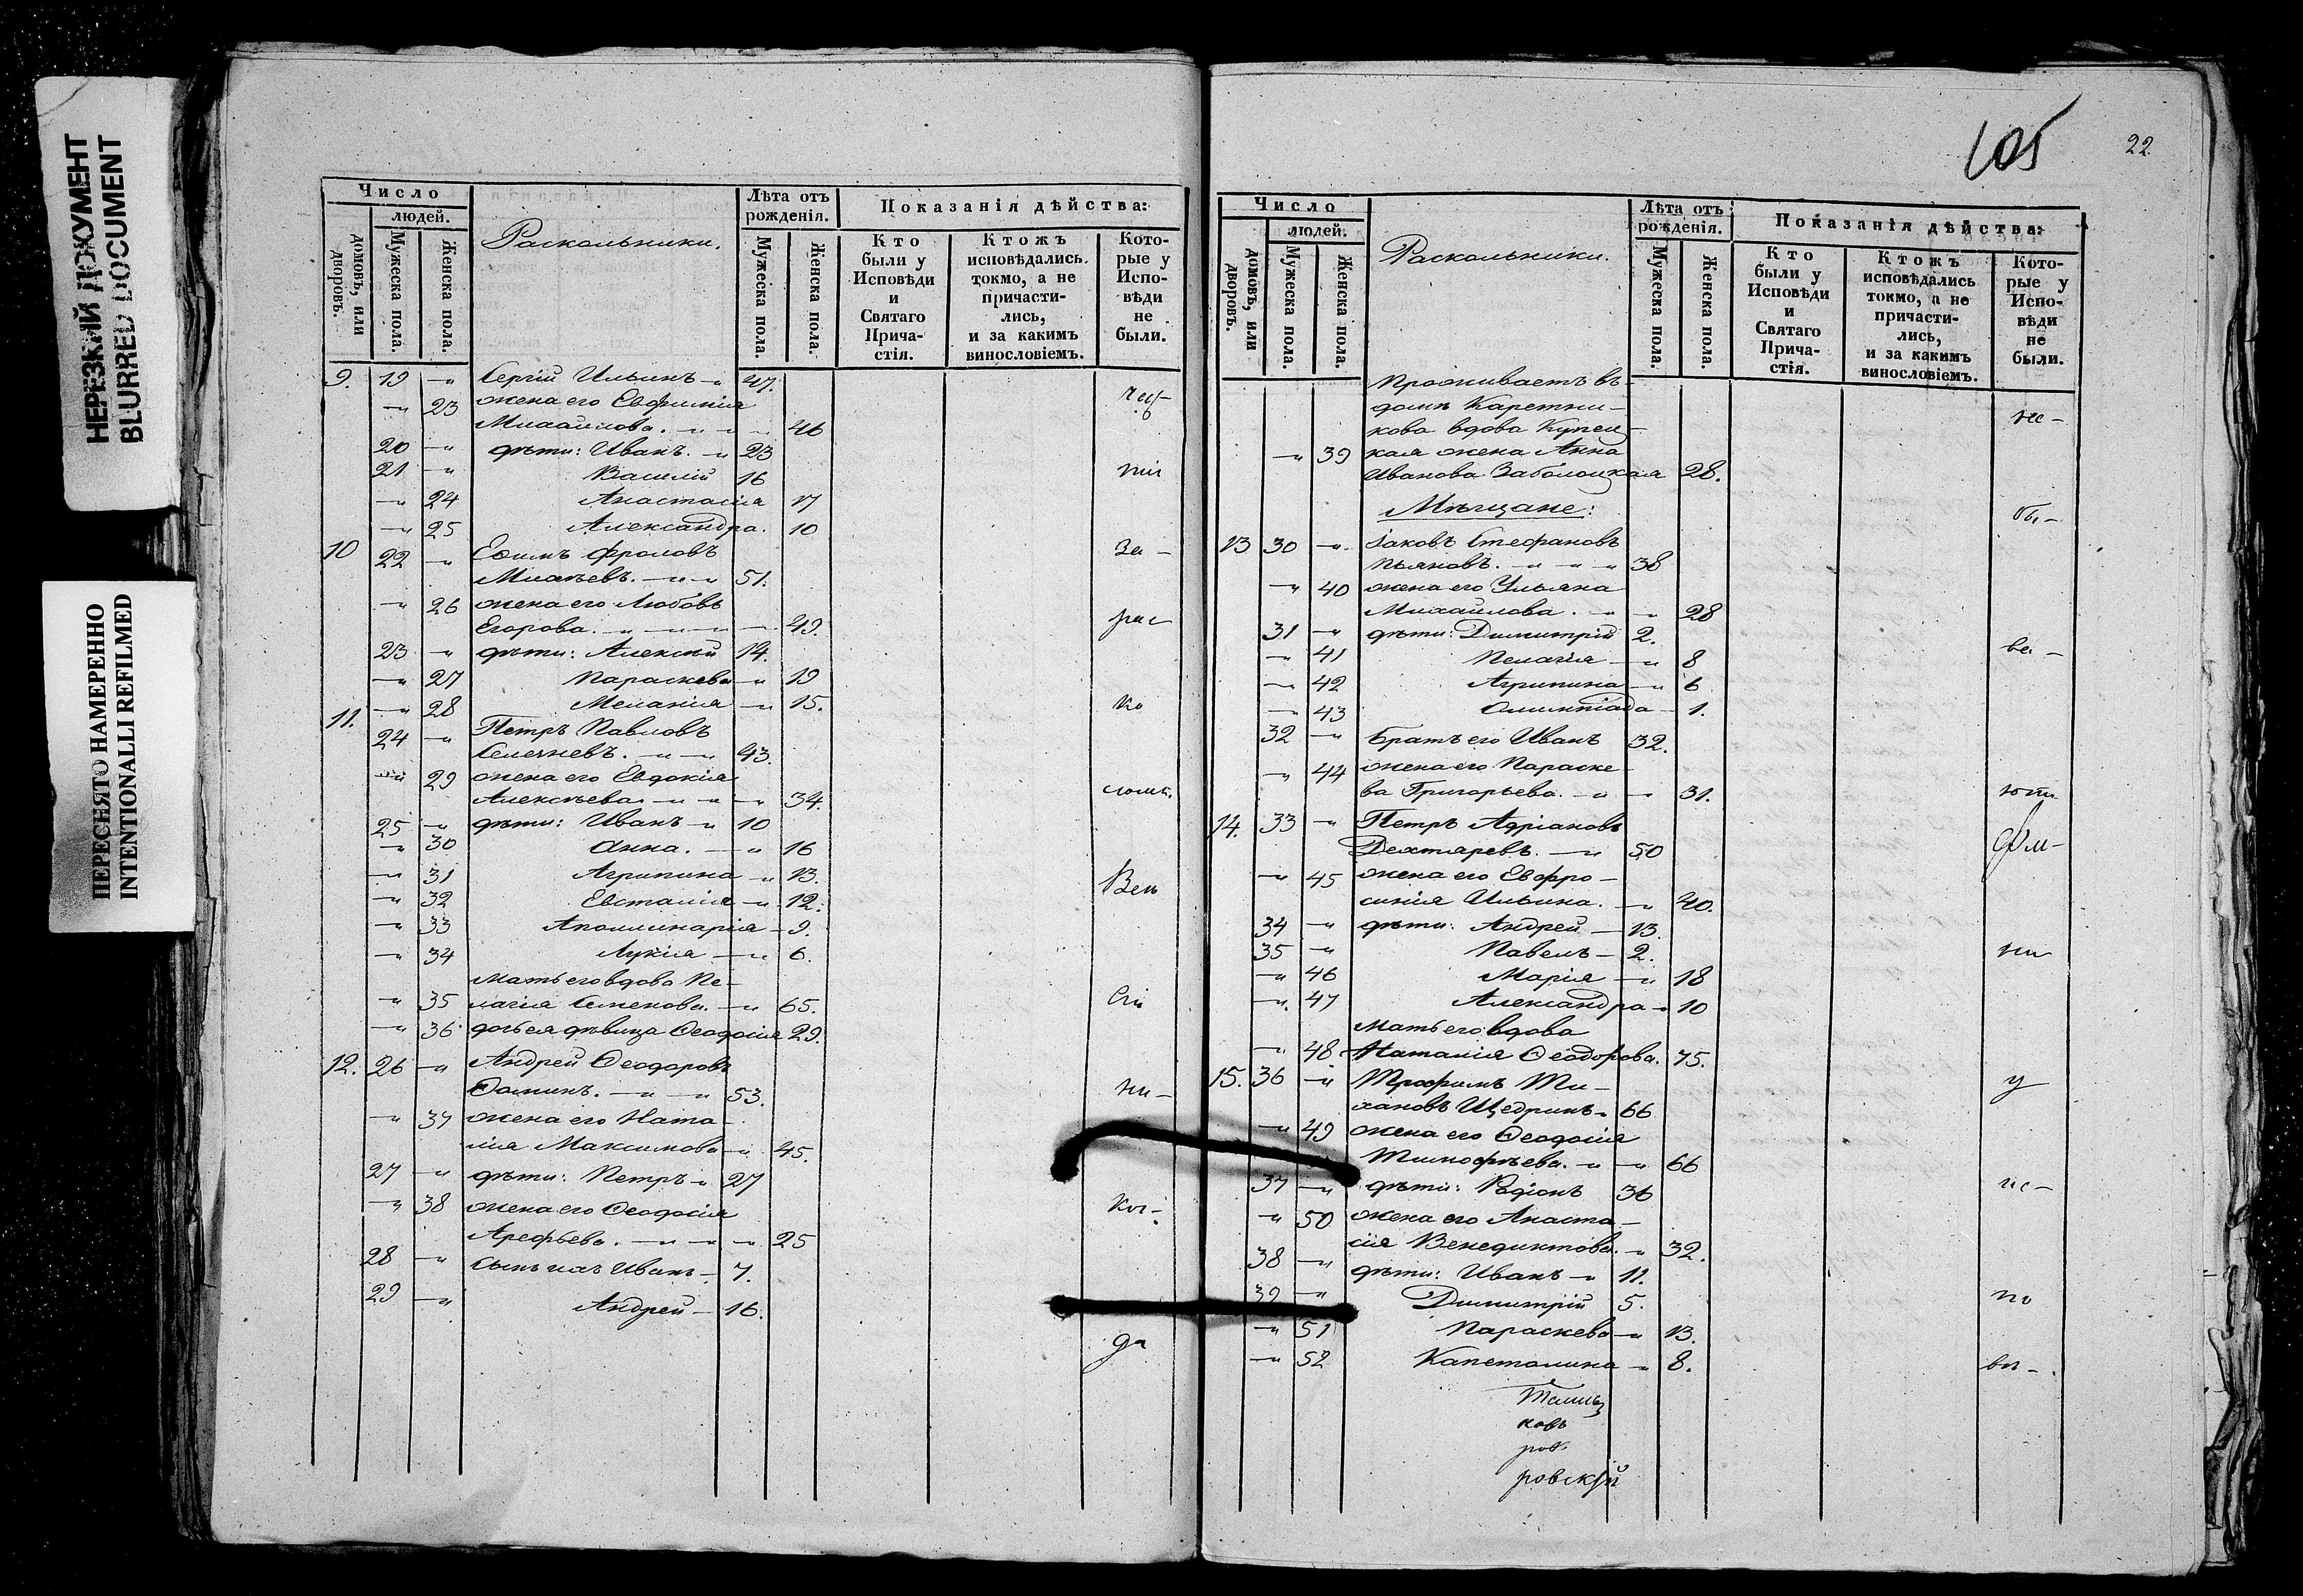 НЕРЕЗКИЙ ДОКУМЕНТ
BLURRED DOCUMENT
ПЕРЕСНЯТО НАМЕРЕННО
INTENTIONALLI REFILMED
Число
людей.
домовъ, или дворовъ.
Мужеска пола.
Женска пола.
Раскольники.
Лѣта отъ рожденія.
Мужеска пола.
Женска пола.
Показанія дѣйства:
Кто были у Исповѣди и Святаго Прича-стія.
Ктожъ исповѣдались токмо, а не причасти-лись, и за какимъ винословіемъ.
Кото-рые у Испо-вѣди не были.
9. 19 -" Сергій Ильинъ -" 47.
-" 23 жена его Евфимія
Михаилова. -" -" - 46
20 -" дѣти: Иванъ. -" 23
21 -" Василій 16
-" 24 Анастасія 17
-" 25 Александра. 10
10 22 -" Ефимъ Фроловъ За-
Михѣевъ. -" -" 51.
-" 26 жена его Любовь
Егорова. -" -" - 49. рас
23 -" дѣти: Алексѣй 14.
-" 27 Параскева -" 19
-" 28 Меланія -" 15. ко
11. 24 -" Петръ Павловъ
Селечневъ. -" -" 43.
-" 29 жена его Евдокія
Алексѣева. -" -" - 34.
25 -" дѣти: Иванъ -" 10
-" 30 Анна. -" 16
-" 31 Агрипина -" 13.
-" 32 Евсталія -" 12.
-" 33 Аполлинарія - 9.
-" 34 Лукія -" 6.
мать его вдова Пе-
-" 35 лагія Семенова. -" 65.
-" 36 дочь ея дѣвица Ѳеодосія 29.
12. 26 -" Андрей Ѳеодоровъ
Ѳоминъ. -" -" 53.
-" 37 жена его Ната- ни-
лія Максимова -" 45.
27 -" дѣти: Петръ -" 27
-" 38 жена его Ѳеодосія
Арефьева. -" -" -" 25
28 -" сынъ ихъ Иванъ - 7.
29 -" Андрей - 16.
да
105
22
Число
людей.
домовъ, или дворовъ.
Мужеска пола.
Женска пола.
Раскольники.
Лѣта отъ рожденія.
Мужеска пола.
Женска пола.
Показанія дѣйства:
Кто были у Исповѣди и Святаго Прича-стія.
Ктожъ исповѣдались токмо, а не причасти-лись, и за какимъ винословіемъ.
Кото-рые у Испо-вѣди не были.
Проживаетъ въ
домѣ Каретни-
кова вдова Купец- не-
-" 39 кая жена Анна
Иванова Заболоцкая 28.
Мѣщане: бы-
13 30 -" Іаковъ Стефановъ
Пьяновъ. -" -" -" 38
-" 40 жена его Ульяна
Михаилова. -" -" 28
31 -" дѣти: Димитрій 2.
-" 41 Пелагія -" 8 ва-
-" 42 Агрипина -" 6
-" 43 Олимпіада - 1.
32 -" братъ его Иванъ 32.
-" 44 жена его Параске-
ва Григорьева. -" - 31.
14. 33 -" Петръ Адріановъ
Дехтяревъ. -" 50
-" 45 жена его Евфро-
синія Ильина. -" 40.
34 -" дѣти: Андрей - 13.
35 -" Павелъ - 2. ни
-" 46 Марія -" 18
-" 47 Александра - 10
мать его вдова
-" 48 Наталія Ѳеодорова. 75.
15. 36 -" Трофимъ Ти- у
хановъ Щедринъ -" 66
-" 49 жена его Ѳеодосія
Тимофѣева. -" -" 66
37 -" дѣти: Родіонъ 36 ис-
-" 50 жена его Анаста-
сія Венедиктова. -" 32.
38 -" дѣти: Иванъ -" 11.
39 -" Димитрій 5. по
-" 51 Параскева -" 13.
-" 52 Капеталина -" 8.
ковъ
ровскій